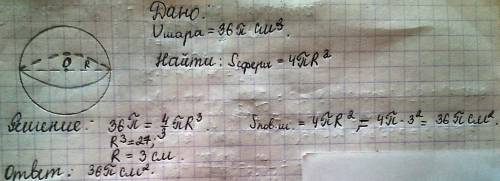 Дано:
Vшара = 36π см³
Найти: Sсферы = 4πR²
O R
Решение: 36π = 4/3 πR³
R³ = 27,
R = 3 см.
Sпов.ш. = 4πR² = 4π·3² = 36π см².
Ответ: 36π см².